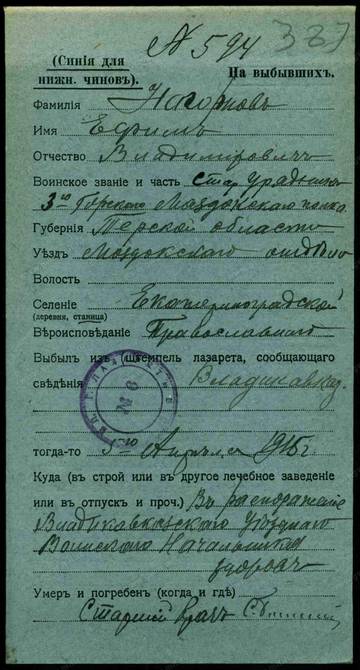 № 594 387
(Синія для
нижн. чиновъ).
На выбывшихъ.
Фамилія
Имя Ефимъ
Отчество Владимировичъ
Воинское званіе и часть Стар. Урядникъ
3го Горско Моздокскаго полка
Губернія Терской области
Уѣздъ Моздокскаго отдѣла
Волость
Селеніе Екатериноградской
(деревня, станица)
Вѣроисповѣданіе Православнаго
Выбылъ изъ (штемпель лазарета, сообщающаго
свѣдѣнія Владикавказ
тогда-то 5го Апрѣля 1915 г
Куда (въ строй или въ другое лечебное заведеніе
или въ отпускъ и проч.) Въ распоряженіе
Владикавказскаго Уѣзднаго
Воинскаго Начальника
здоровъ
Умеръ и погребенъ (когда и гдѣ)
Старшій врачъ